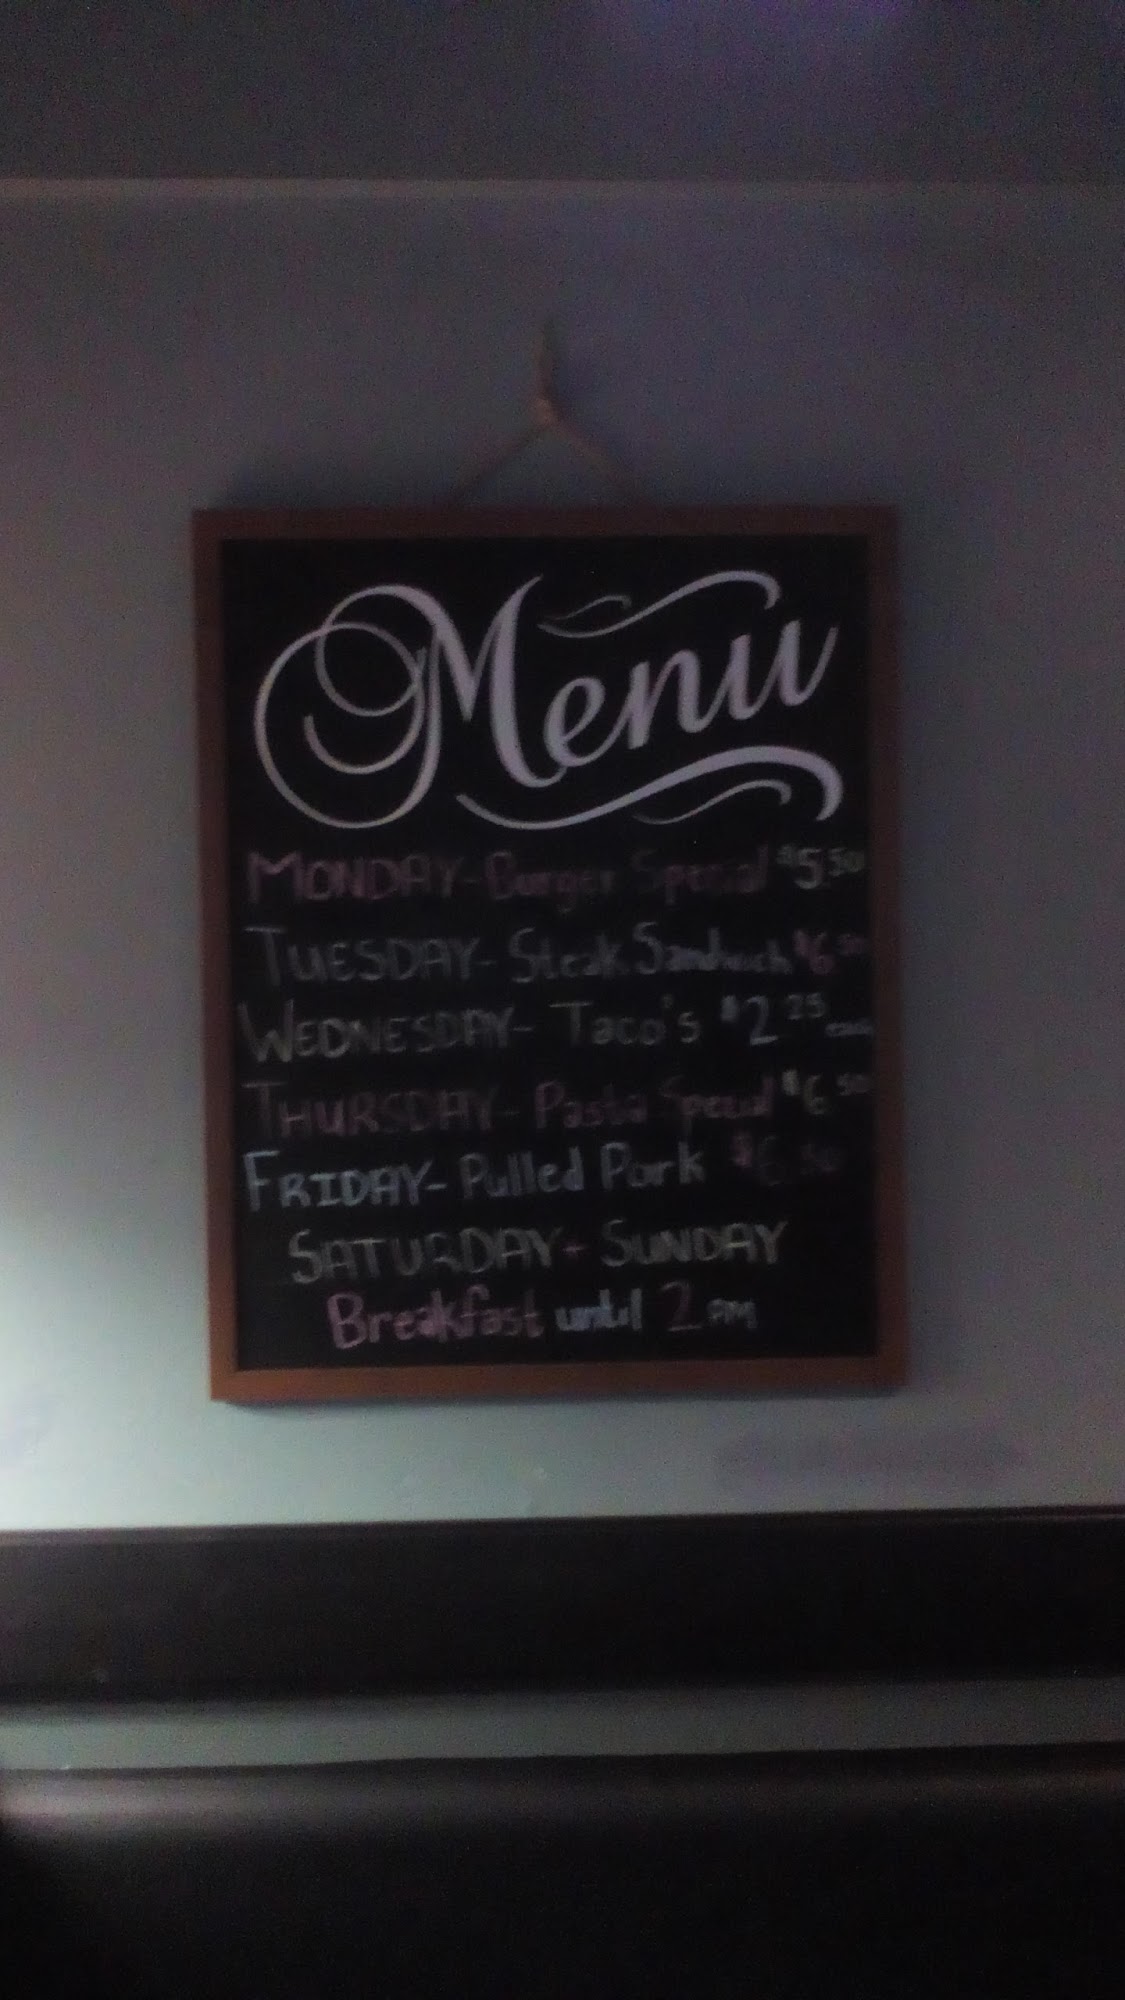 Menu
MONDAY- Burger Special $5.50
TUESDAY- Steak Sandwich $6.50
WEDNESDAY- Taco's $2.25 each
THURSDAY- Pasta Special $6.50
FRIDAY- Pulled Pork $6.50
SATURDAY + SUNDAY
Breakfast until 2 PM